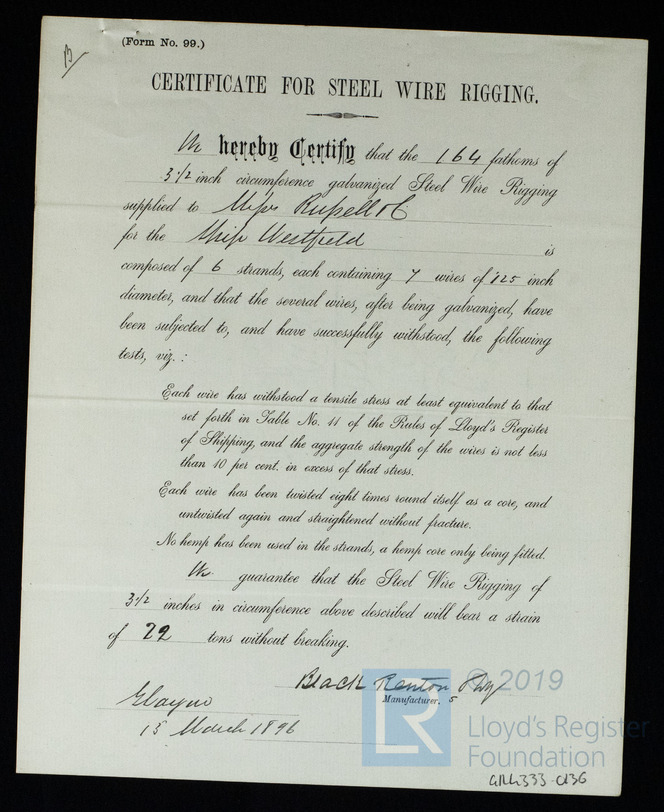 B
(Form No. 99.)
CERTIFICATE FOR STEEL WIRE RIGGING.
We hereby Certify that the 164 fathoms of
3 1/2 inch circumference galvanized Steel Wire Rigging
supplied to Messrs Russell & Co
for the Ship Westfield is
composed of 6 strands, each containing 7 wires of .125 inch
diameter, and that the several wires, after being galvanized, have
been subjected to, and have successfully withstood, the following
tests, viz.:
Each wire has withstood a tensile stress at least equivalent to that
set forth in Table No. 11 of the Rules of Lloyd's Register
of Shipping, and the aggregate strength of the wires is not less
than 10 per cent. in excess of that stress.
Each wire has been twisted eight times round itself as a core, and
untwisted again and straightened without fracture.
No hemp has been used in the strands, a hemp core only being fitted.
We guarantee that the Steel Wire Rigging of
3 1/2 inches in circumference above described will bear a strain
of 22 tons without breaking.
Black Renton
Manufacturer. s
Glasgow
13 March 1896
LR
© 2019
Lloyd's Register
Foundation
GRK333-0136